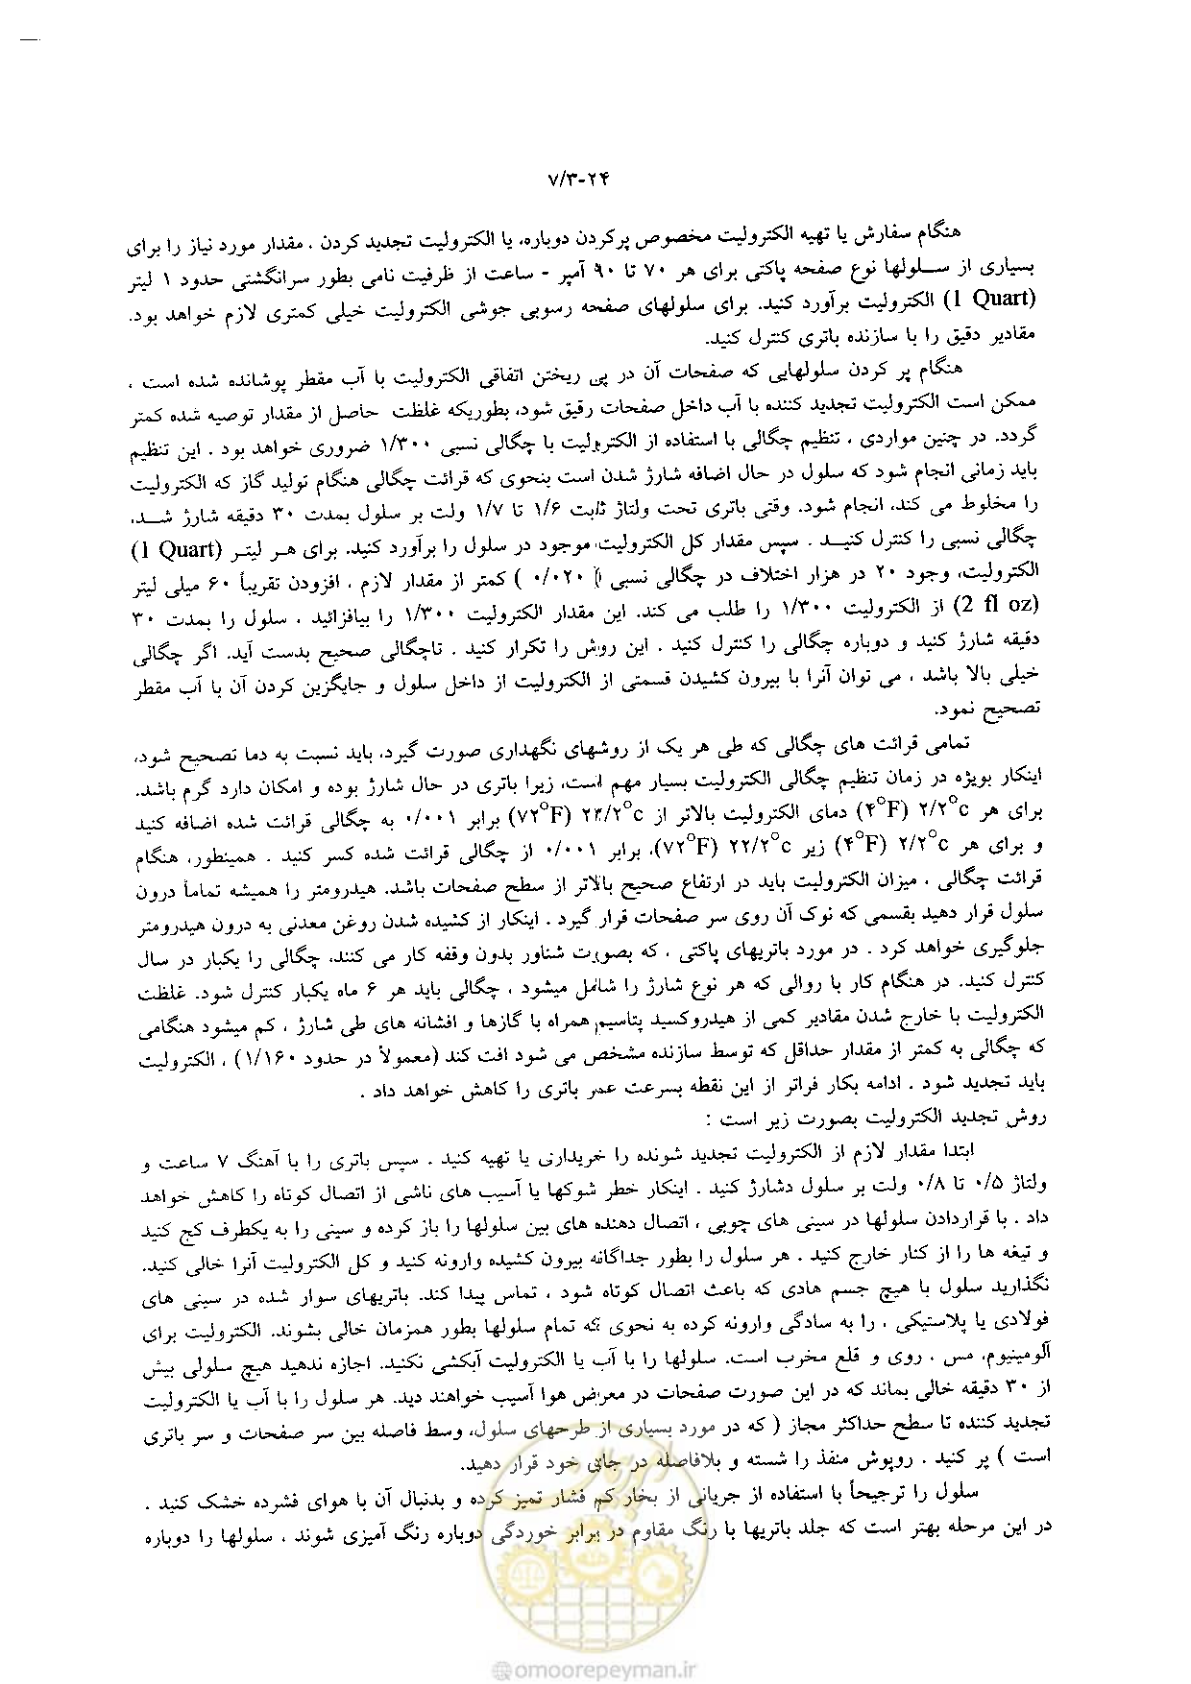 ۷/۳-۲۴
هنگام سفارش یا تهیه الکترولیت مخصوص پرکردن دوباره، یا الکترولیت تجدید کردن ، مقدار مورد نیاز را برای
بسیاری از سـلولها نوع صفحه پاکتی برای هر ۷۰ تا ۹۰ آمپر - ساعت از ظرفیت نامی بطور سرانگشتی حدود ۱ لیتر
(1 Quart) الکترولیت برآورد کنید. برای سلولهای صفحه رسوبی جوشی الکترولیت خیلی کمتری لازم خواهد بود.
مقادیر دقیق را با سازنده باتری کنترل کنید.
هنگام پر کردن سلولهایی که صفحات آن در پی ریختن اتفاقی الکترولیت با آب مقطر پوشانده شده است ،
ممکن است الکترولیت تجدید کننده با آب داخل صفحات رقیق شود، بطوریکه غلظت حاصل از مقدار توصیه شده کمتر
گردد. در چنین مواردی ، تنظیم چگالی با استفاده از الکترولیت با چگالی نسبی ۱/۳۰۰ ضروری خواهد بود . این تنظیم
باید زمانی انجام شود که سلول در حال اضافه شارژ شدن است بنحوی که قرائت چگالی هنگام تولید گاز که الکترولیت
را مخلوط می کند، انجام شود. وقتی باتری تحت ولتاژ ثابت ۱/۶ تا ۱/۷ ولت بر سلول بمدت ۳۰ دقیقه شارژ شـد،
چگالی نسبی را کنترل کنیـد . سپس مقدار کل الکترولیت موجود در سلول را برآورد کنید. برای هـر لیتـر (1 Quart)
الکترولیت، وجود ۲۰ در هزار اختلاف در چگالی نسبی ( ۰/۰۲۰ ) کمتر از مقدار لازم ، افزودن تقریباً ۶۰ میلی لیتر
(2 fl oz) از الکترولیت ۱/۳۰۰ را طلب می کند. این مقدار الکترولیت ۱/۳۰۰ را بیافزائید ، سلول را بمدت ۳۰
دقیقه شارژ کنید و دوباره چگالی را کنترل کنید . این روش را تکرار کنید . تاچگالی صحیح بدست آید. اگر چگالی
خیلی بالا باشد ، می توان آنرا با بیرون کشیدن قسمتی از الکترولیت از داخل سلول و جایگزین کردن آن با آب مقطر
تصحیح نمود.
تمامی قرائت های چگالی که طی هر یک از روشهای نگهداری صورت گیرد، باید نسبت به دما تصحیح شود،
اینکار بویژه در زمان تنظیم چگالی الکترولیت بسیار مهم است، زیرا باتری در حال شارژ بوده و امکان دارد گرم باشد.
برای هر ۲/۲°c (۴°F) دمای الکترولیت بالاتر از ۲۲/۲°c (۷۲°F) برابر ۰/۰۰۱ به چگالی قرائت شده اضافه کنید
و برای هر ۲/۲°c (۴°F) زیر ۲۲/۲°c (۷۲°F)، برابر ۰/۰۰۱ از چگالی قرائت شده کسر کنید . همینطور، هنگام
قرائت چگالی ، میزان الکترولیت باید در ارتفاع صحیح بالاتر از سطح صفحات باشد. هیدرومتر را همیشه تماماً درون
سلول قرار دهید بقسمی که نوک آن روی سر صفحات قرار گیرد . اینکار از کشیده شدن روغن معدنی به درون هیدرومتر
جلوگیری خواهد کرد . در مورد باتریهای پاکتی ، که بصورت شناور بدون وقفه کار می کنند، چگالی را یکبار در سال
کنترل کنید. در هنگام کار با روالی که هر نوع شارژ را شامل میشود ، چگالی باید هر ۶ ماه یکبار کنترل شود. غلظت
الکترولیت با خارج شدن مقادیر کمی از هیدروکسید پتاسیم همراه با گازها و افشانه های طی شارژ ، کم میشود هنگامی
که چگالی به کمتر از مقدار حداقل که توسط سازنده مشخص می شود افت کند (معمولاً در حدود ۱/۱۶۰) ، الکترولیت
باید تجدید شود . ادامه بکار فراتر از این نقطه بسرعت عمر باتری را کاهش خواهد داد .
روش تجدید الکترولیت بصورت زیر است :
ابتدا مقدار لازم از الکترولیت تجدید شونده را خریداری یا تهیه کنید . سپس باتری را با آهنگ ۷ ساعت و
ولتاژ ۰/۵ تا ۰/۸ ولت بر سلول دشارژ کنید . اینکار خطر شوکها یا آسیب های ناشی از اتصال کوتاه را کاهش خواهد
داد . با قراردادن سلولها در سینی های چوبی ، اتصال دهنده های بین سلولها را باز کرده و سینی را به یکطرف کج کنید
و تیغه ها را از کنار خارج کنید . هر سلول را بطور جداگانه بیرون کشیده وارونه کنید و کل الکترولیت آنرا خالی کنید.
نگذارید سلول با هیچ جسم هادی که باعث اتصال کوتاه شود ، تماس پیدا کند. باتریهای سوار شده در سینی های
فولادی یا پلاستیکی ، را به سادگی وارونه کرده به نحوی که تمام سلولها بطور همزمان خالی بشوند. الکترولیت برای
آلومینیوم، مس ، روی و قلع مخرب است. سلولها را با آب یا الکترولیت آبکشی نکنید. اجازه ندهید هیچ سلولی بیش
از ۳۰ دقیقه خالی بماند که در این صورت صفحات در معرض هوا آسیب خواهند دید. هر سلول را با آب یا الکترولیت
تجدید کننده تا سطح حداکثر مجاز ( که در مورد بسیاری از طرحهای سلول، وسط فاصله بین سر صفحات و سر باتری
است ) پر کنید . روپوش منفذ را شسته و بلافاصله در جای خود قرار دهید.
سلول را ترجیحاً با استفاده از جریانی از بخار کم فشار تمیز کرده و بدنبال آن با هوای فشرده خشک کنید .
در این مرحله بهتر است که جلد باتریها با رنگ مقاوم در برابر خوردگی دوباره رنگ آمیزی شوند ، سلولها را دوباره
@omoorepeyman.ir